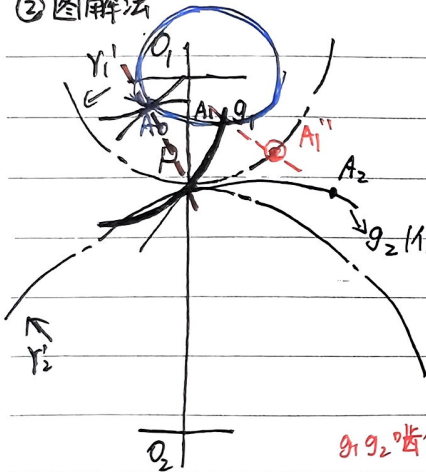 ② 图解法
O₁
r₁'
A₁ g₁
A₁"
A₀
P
A₂
g₂
r₂'
O₂
g₁ g₂ 啮